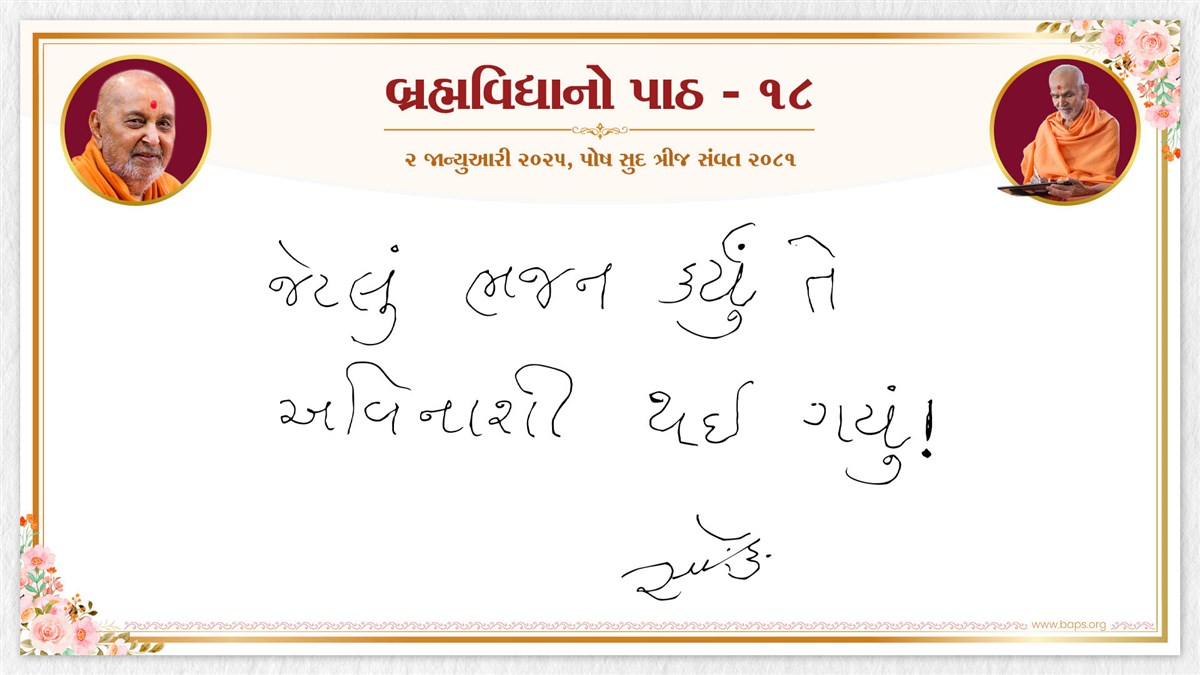 બ્રહ્મવિદ્યાનો પાઠ - ૧૮
૨ જાન્યુઆરી ૨૦૨૫, પોષ સુદ ત્રીજ સંવત ૨૦૮૧
જેટલું ભજન કર્યું તે
અવિનાશી થઈ ગયું!
www.baps.org